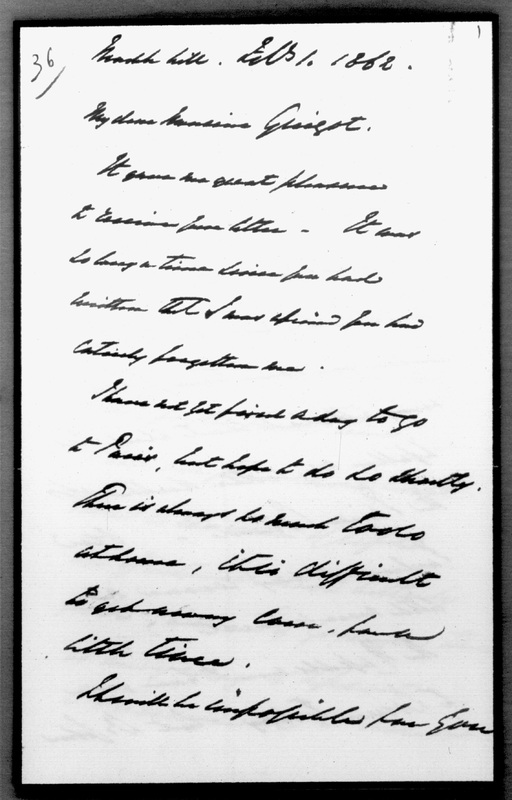 36
Feb 1. 1862.
My dear Monsieur Guizot.
It gave me great pleasure
to receive your letter - It was
so long a time since you had
written that I was afraid you had
entirely forgotten me.
I have not yet fixed a day to go
to Paris, but hope to do so shortly.
There is always so much to do
at home, it is difficult
to get away even for a
little time.
It will be impossible for you